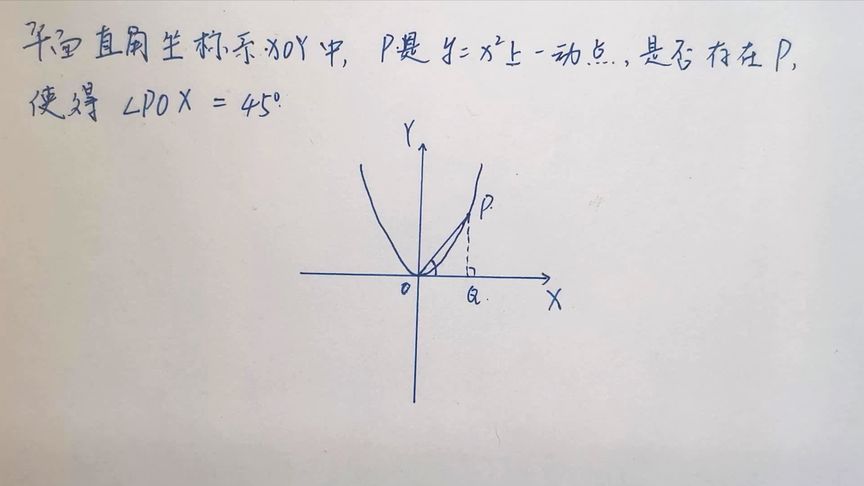 平面直角坐标系XOY中, P是y=x²上一动点, 是否存在P,
使得 ∠POX = 45°.
Y
P.
O
Q.
X